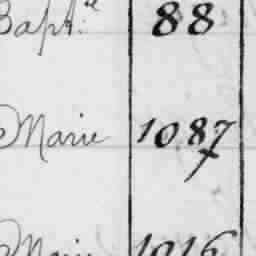 Bapt.te 88
Marie 1087
Marie 1016